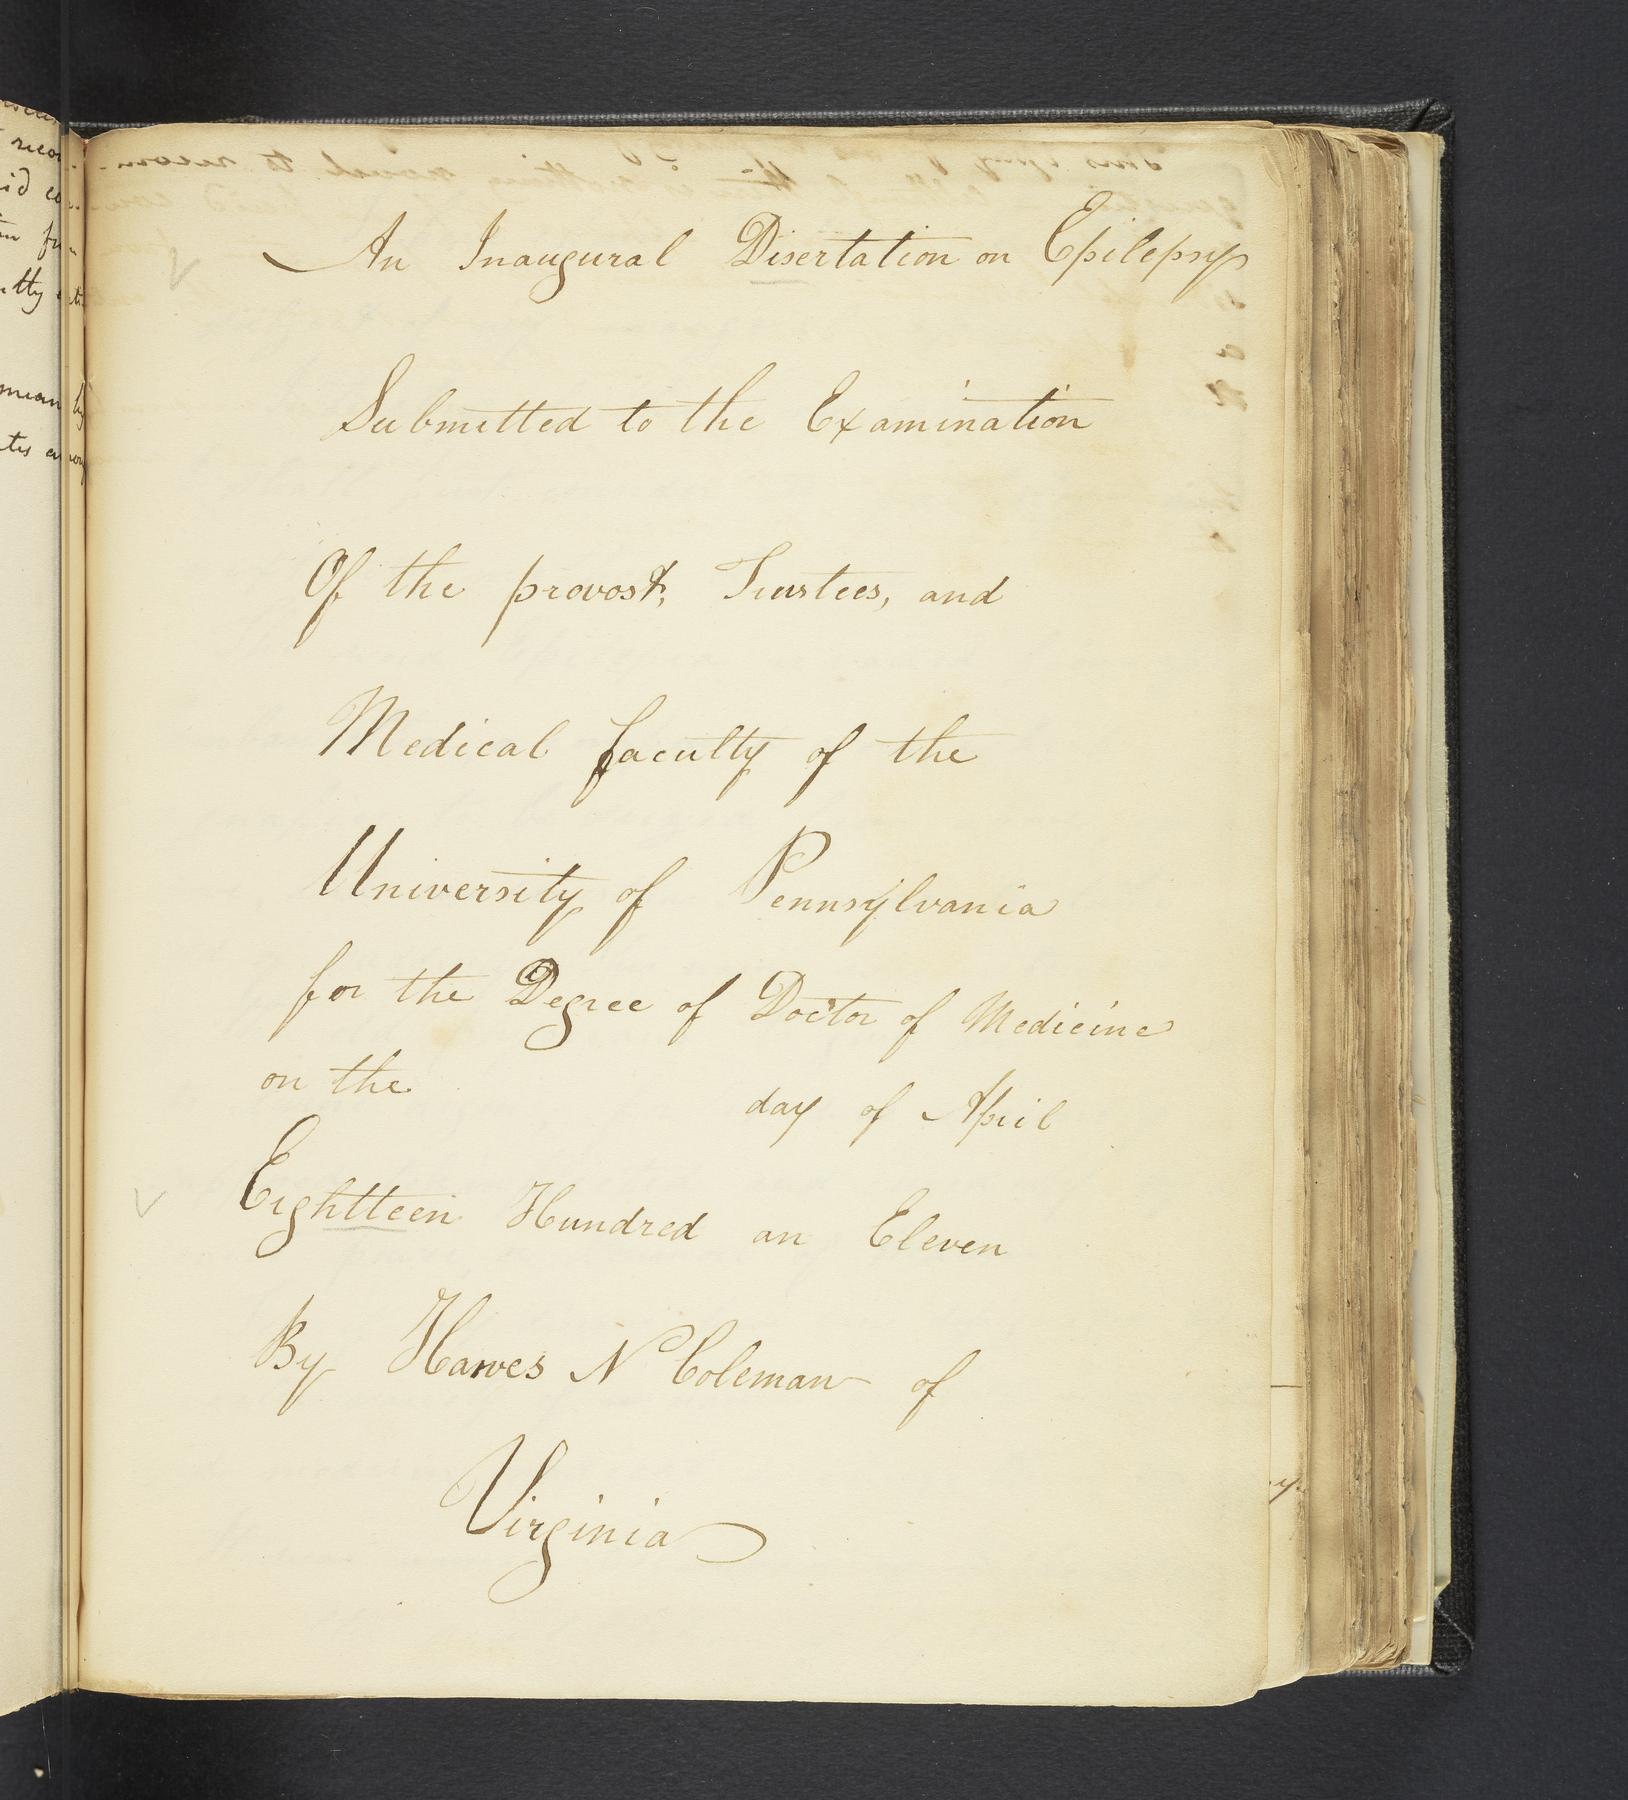 An Inaugural Disertation on Epilepsy
Submitted to the Examination
Of the provost, Trustees, and
Medical faculty of the
University of Pennsylvania
for the Degree of Doctor of Medicine
on the day of April
Eightteen Hundred an Eleven
By Hawes N Coleman of
Virginia